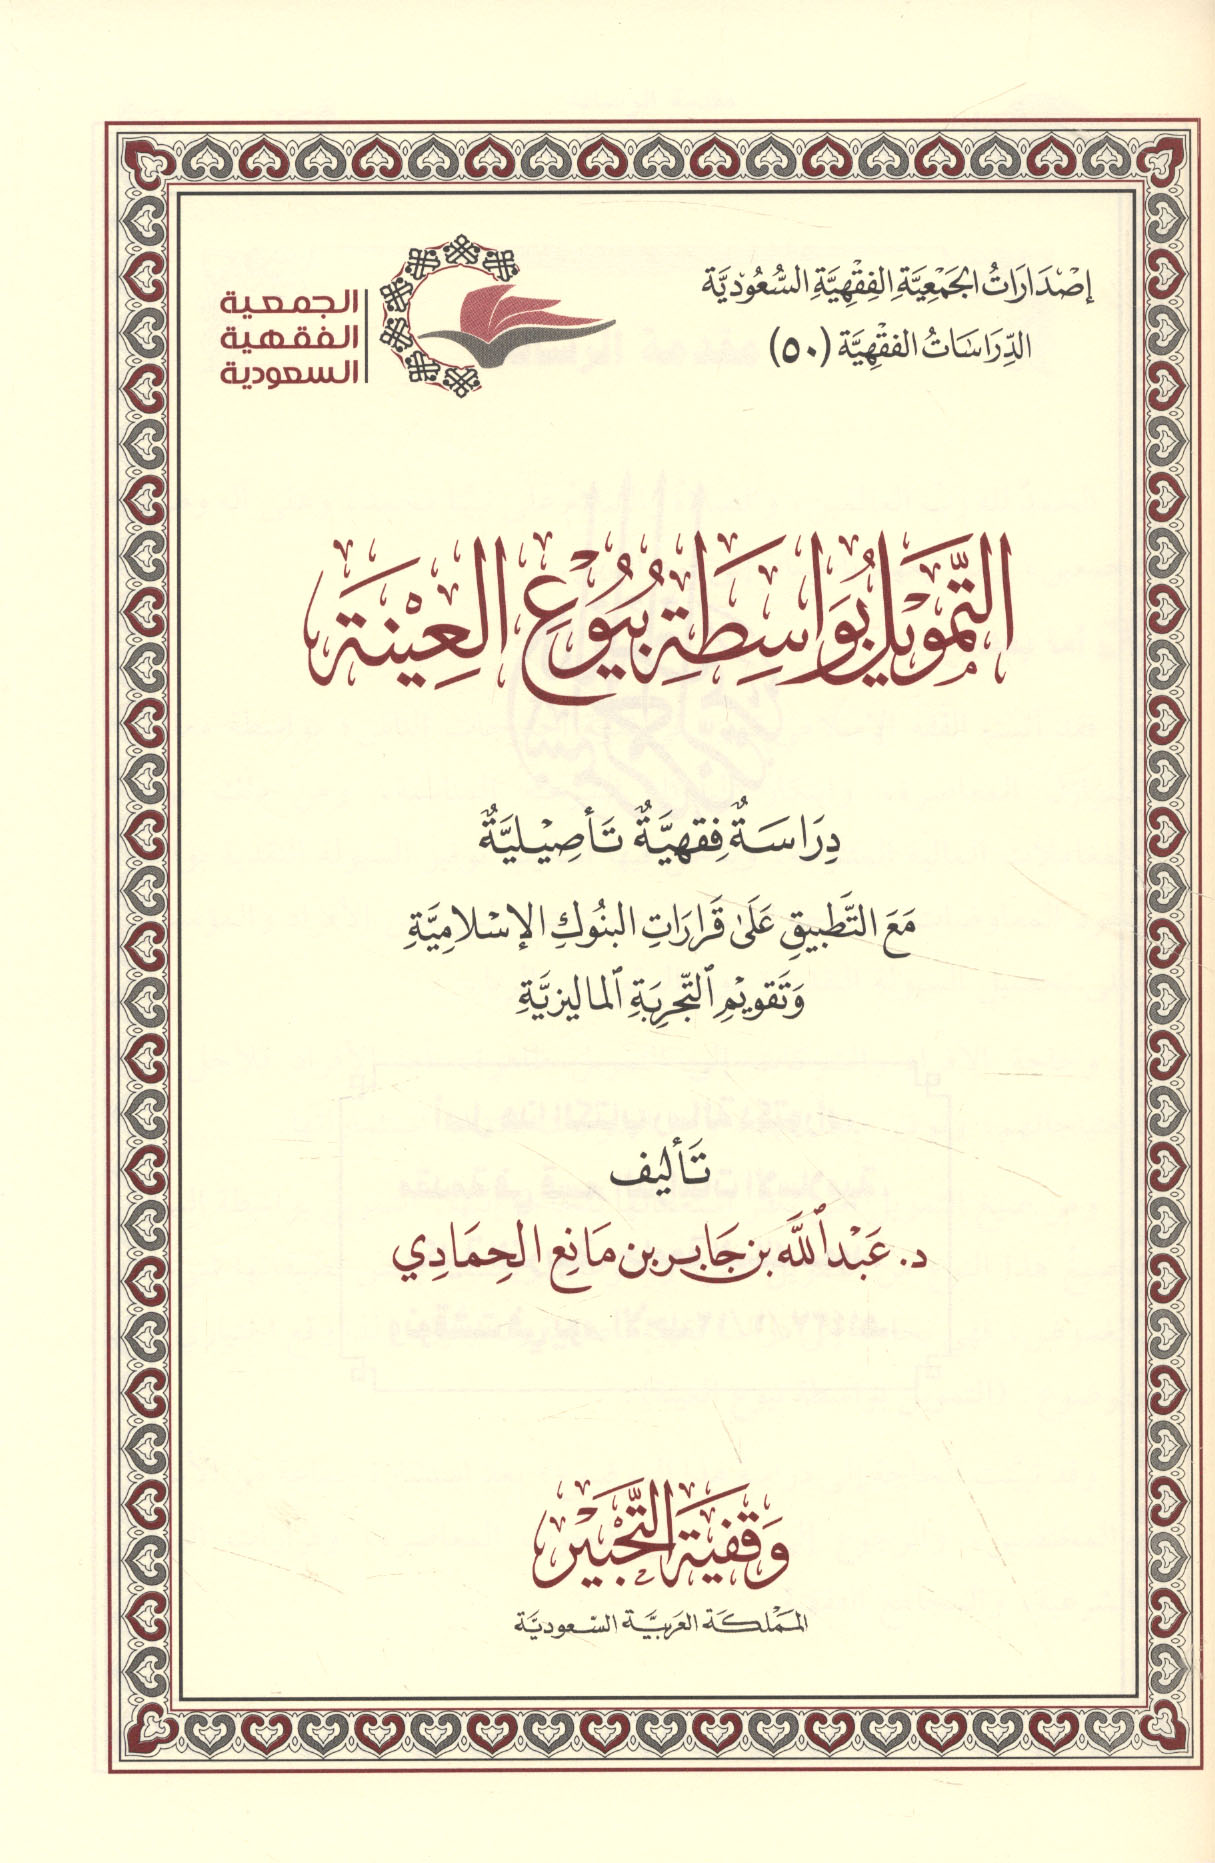 إِصْدَارَاتُ الجَمْعِيَّةِ الفِقْهِيَّةِ السُّعُوْدِيَّة
الدِّرَاسَاتُ الفِقْهِيَّة (٥٠)
الجمعية
الفقهية
السعودية
التَّمْوِيْلُ بِوَاسِطَةِ بُيُوْعِ العِيْنَةِ
دِرَاسَةٌ فِقْهِيَّةٌ تَأصِيْلِيَّةٌ
مَعَ التَّطبِيقِ عَلَى قَرَارَاتِ البُنُوكِ الإِسْلَامِيَّةِ
وَتَقوِيْمِ التَّجرِبَةِ الماليزيَّةِ
تَأليف
د. عَبْدُ اللَّه بن جَابِر بن مَانِع الحِمَادِي
وَقفِيَّةُ التَّحْبِيْر
المَمْلكَة العَربيَّة السّعوديَّة